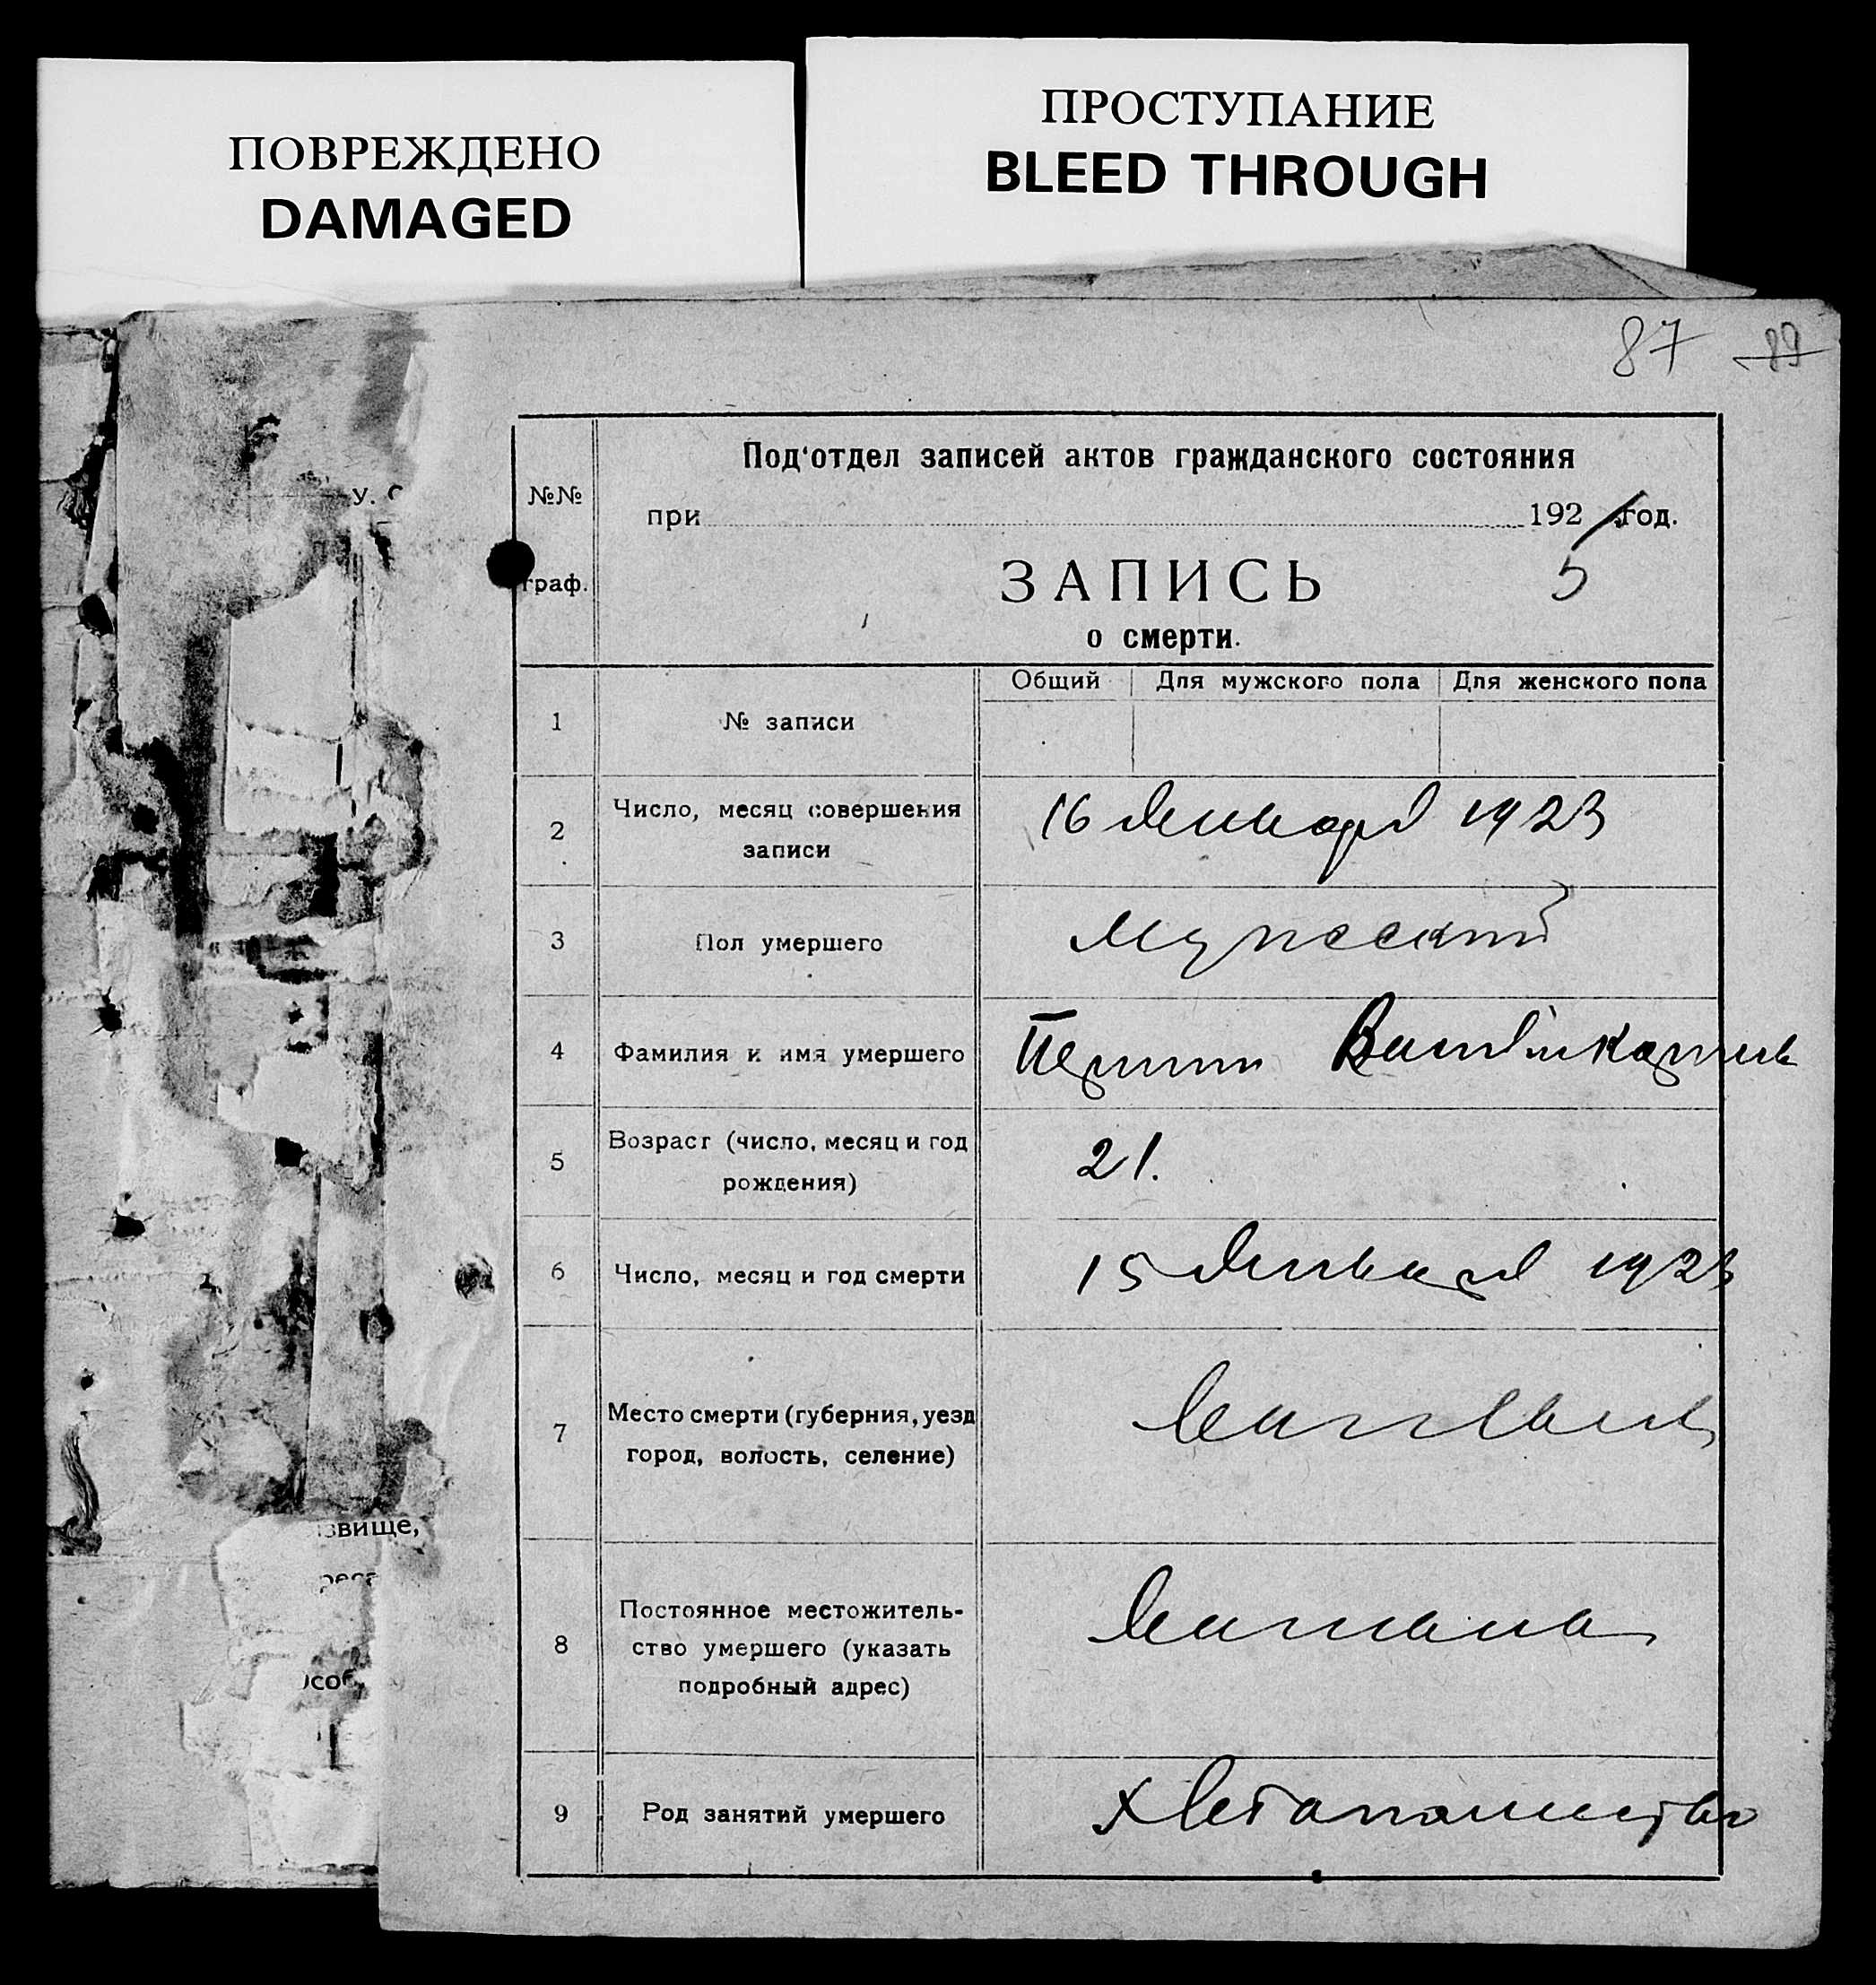 ПОВРЕЖДЕНО
DAMAGED
ПРОСТУПАНИЕ
BLEED THROUGH
87 89
у.
№№
граф.
Под‘отдел записей актов гражданского состояния
при 192 год.
5
ЗАПИСЬ
о смерти.
Общий Для мужского пола Для женского пола
1 № записи
2 Число, месяц совершения
записи
16 Января 1923
3 Пол умершего
мужской
4 Фамилия и имя умершего
5 Возраст (число, месяц и год
рождения)
21.
6 Число, месяц и год смерти
15 Января 1923
7 Место смерти (губерния, уезд
город, волость, селение)
8 Постоянное местожитель-
ство умершего (указать
подробный адрес)
9 Род занятий умершего
Хлебопашество
звище,